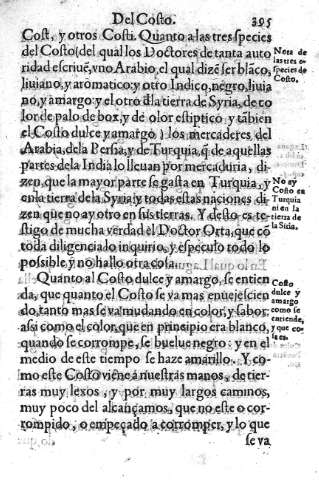 Del Costo. 395
Cost, y otros Costi. Quanto a las tres species
del Costo (del qual los Doctores de tanta auto
ridad escriuẽ, vno Arabio, el qual dizẽ ser blãco,
liuiano, y aromatico: y otro Indico, negro, liuia
no, y amargo: y el otro d̃la tierra de Syria, de co
lor de palo de box, y de olor estiptico: y tãbien
el Costo dulce y amargo) los mercaderes del
Arabia, dela Persia, y de Turquia, q̃ de aquellas
partes dela India lo lleuan por mercaduria, di-
zen, que la mayor parte se gasta en Turquia, y
en la tierra dela Syria, y todas estas naciones di
zen que no ay otro en sus tierras. Y desto es te-
stigo de mucha verdad el Doctor Orta, que cõ
toda diligencia lo inquirio, y especulo todo lo
possible, y no hallo otra cosa.
Quanto al Costo dulce y amargo, se entien
da, que quanto el Costo se va mas enuejescien
do, tanto mas se va mudando en color, y sabor:
assi como el color, que en principio era blanco,
quando se corrompe, se buelue negro: y en el
medio de este tiempo se haze amarillo. Y co-
mo este Costo viene à nuestras manos, de tier-
ras muy lexos, y por muy largos caminos,
muy poco del alcançamos, que no este o cor-
rompido, o empeçado a corromper, y lo que
se va
Nota de
las tres e-
species de
Costo.
No ay
Costo en
Turquia
ni en la
tierra de
la Siria.
Costo
dulce y
amargo
como se
entiende,
y que co-
sa es.